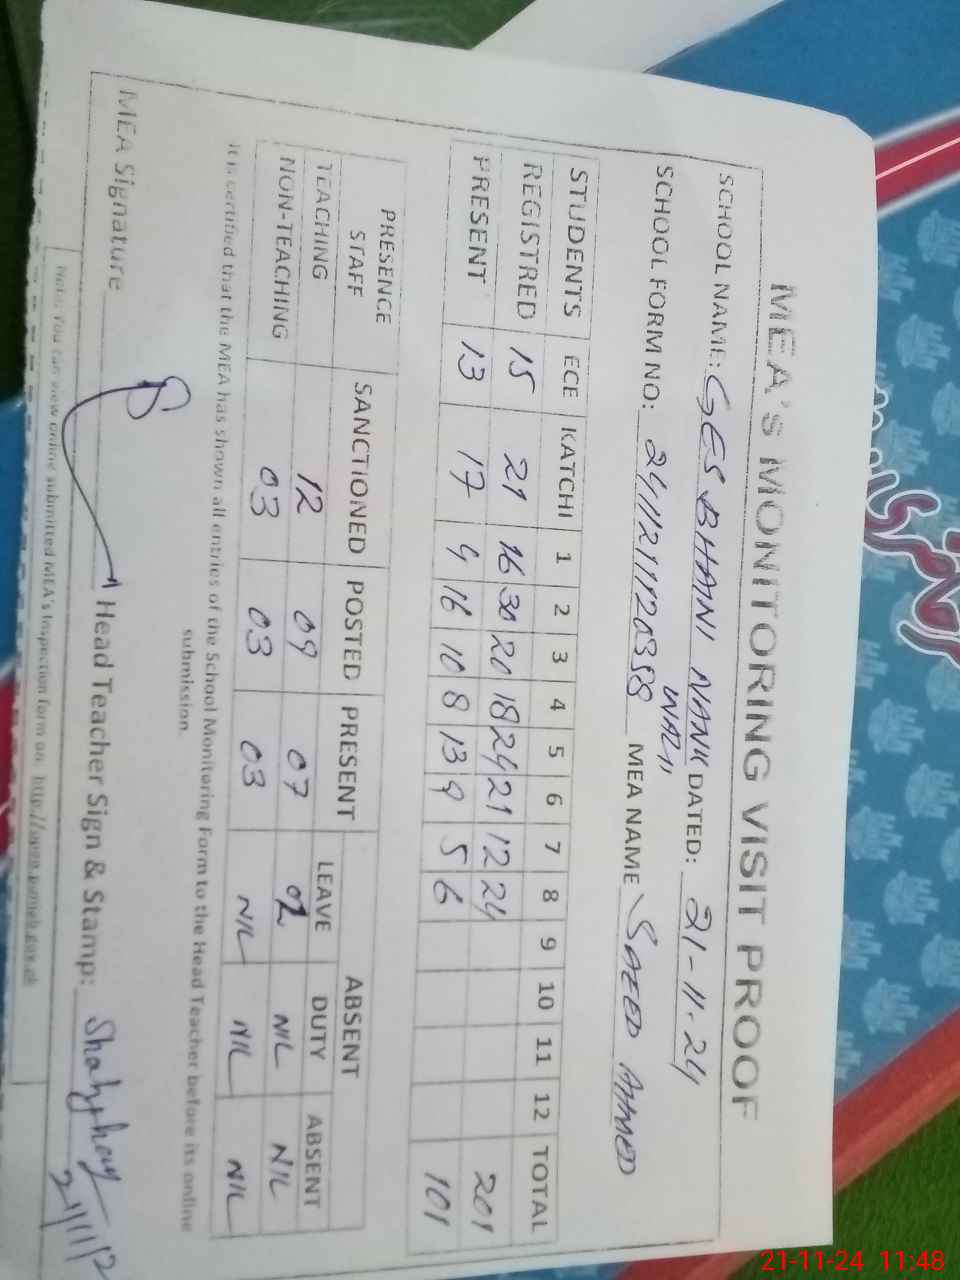 MEA'S MONITORING VISIT PROOF
SCHOOL NAME: GES BHANI NANK WALI DATED: 21-11-24
SCHOOL FORM NO: MEA NAME SAEED AHMED
STUDENTS ECE KATCHI 1 2 3 4 5 6 7 8 9 10 11 12 TOTAL
REGISTRED 15 21 16 30 20 18 24 21 12 24 201
PRESENT 13 17 9 16 10 8 13 9 5 6 101
PRESENCE STAFF SANCTIONED POSTED PRESENT ABSENT
LEAVE DUTY ABSENT
TEACHING 12 09 07 02 NIL NIL
NON-TEACHING 03 03 03 NIL NIL NIL
It is certified that the MEA has shown all entries of the School Monitoring Form to the Head Teacher before its online
submission.
MEA Signature Head Teacher Sign & Stamp:
Note: You can view online submitted MEA's Inspection form on
21-11-24 11:48